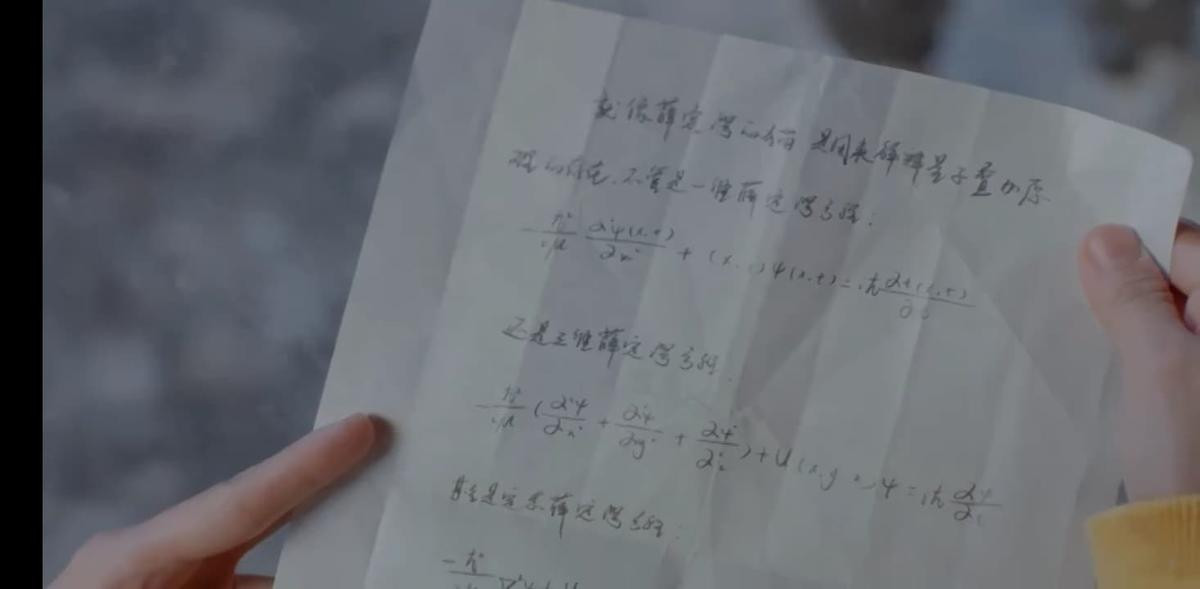 就像薛定谔的猫 是用来解释量子叠加原
理的存在,不管是一维薛定谔方程:
-ħ²/2μ ∂²ψ(x,t)/∂x² + U(x,t)ψ(x,t)=iħ ∂ψ(x,t)/∂t
还是三维薛定谔方程:
-ħ²/2μ (∂²ψ/∂x² + ∂²ψ/∂y² + ∂²ψ/∂z²) + U(x,y,z)ψ = iħ ∂ψ/∂t
甚至是定态薛定谔方程: